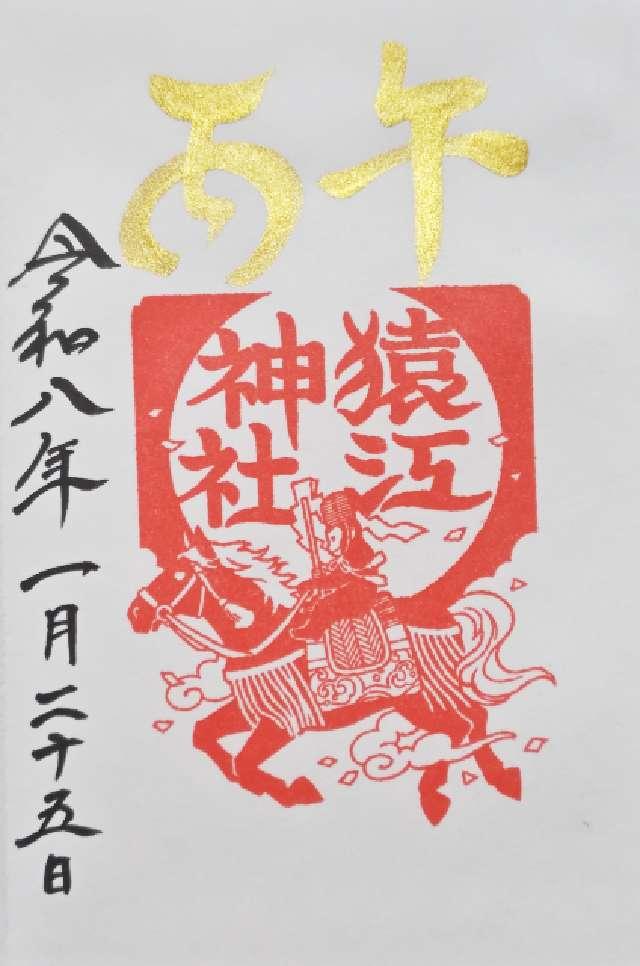 丙午
猿江
神社
令和八年一月二十五日